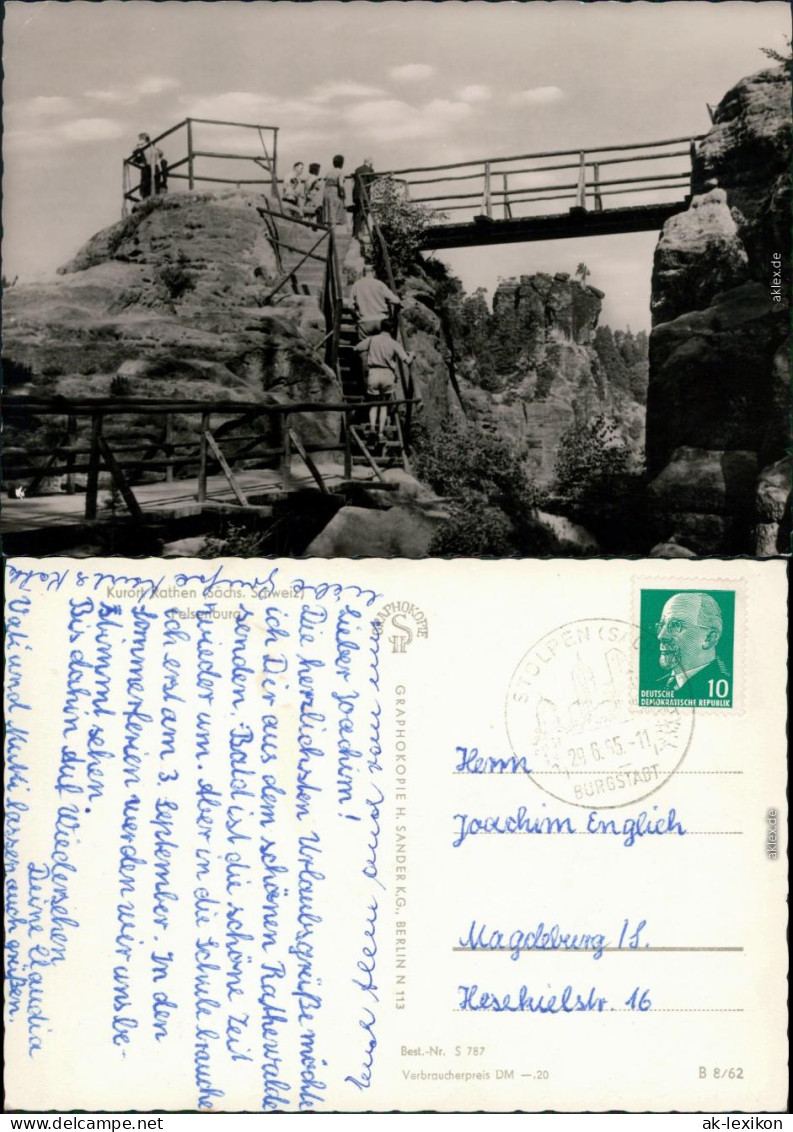 Kurort Rathen (Sächs. Schweiz)
Felsenburg
Lieber Joachim!
Die herzlichsten Urlaubsgrüße möchte
ich Dir aus dem schönen Rathewalde
senden. Bald ist die schöne Zeit
wieder um. Aber in die Schule brauche
ich erst am 3. September. In den
Sommerferien werden wir uns be-
stimmt sehen.
Bis dahin auf Wiedersehen
Deine Claudia
Vati und Mutti lassen auch grüßen.
GRAPHOKOPIE
GRAPHOKOPIE H. SANDER K.G., BERLIN N 113
Best.-Nr. S 787
Verbraucherpreis DM —.20
STOLPEN
29.6.65.-11
BURGSTADT
DEUTSCHE
DEMOKRATISCHE REPUBLIK
10
Herrn
Joachim Englich
Magdeburg/S.
Hesekielstr. 16
B 8/62
aklex.de
aklex.de
www.ak-lexikon.de
ak-lexikon